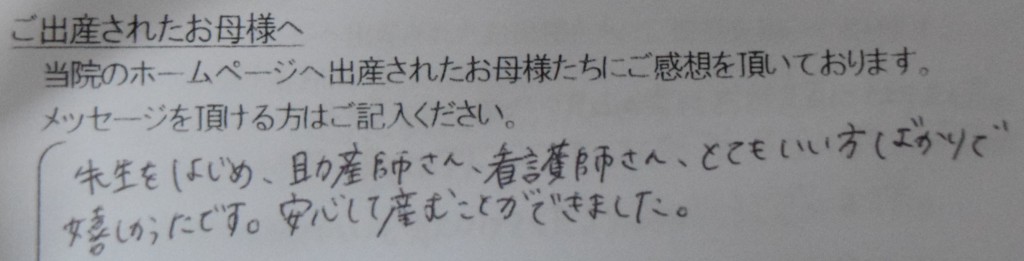 ご出産されたお母様へ
当院のホームページへ出産されたお母様たちにご感想を頂いております。
メッセージを頂ける方はご記入ください。
先生をはじめ、助産師さん、看護師さん、とてもいい方ばかりで
嬉しかったです。安心して産むことができました。